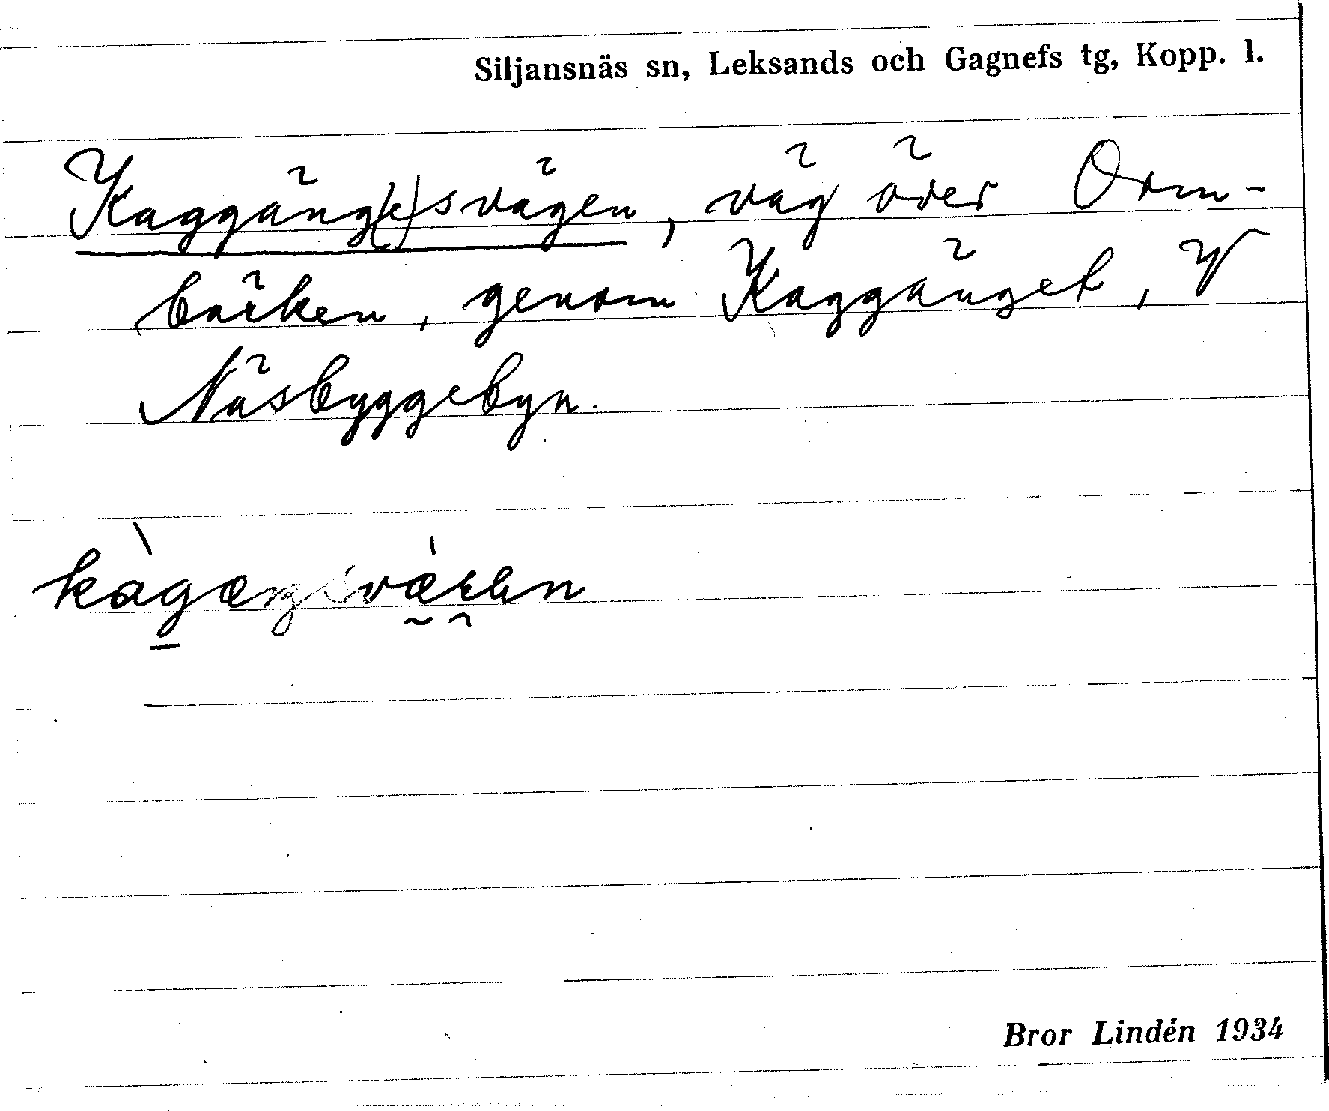 Siljansnäs sn, Leksands och Gagnefs tg, Kopp. l.
Kaggäng(e)svägen, väg över Orm-
bäcken, genom Kaggänget, V
Näsbyggebyn.
Bror Lindén 1934